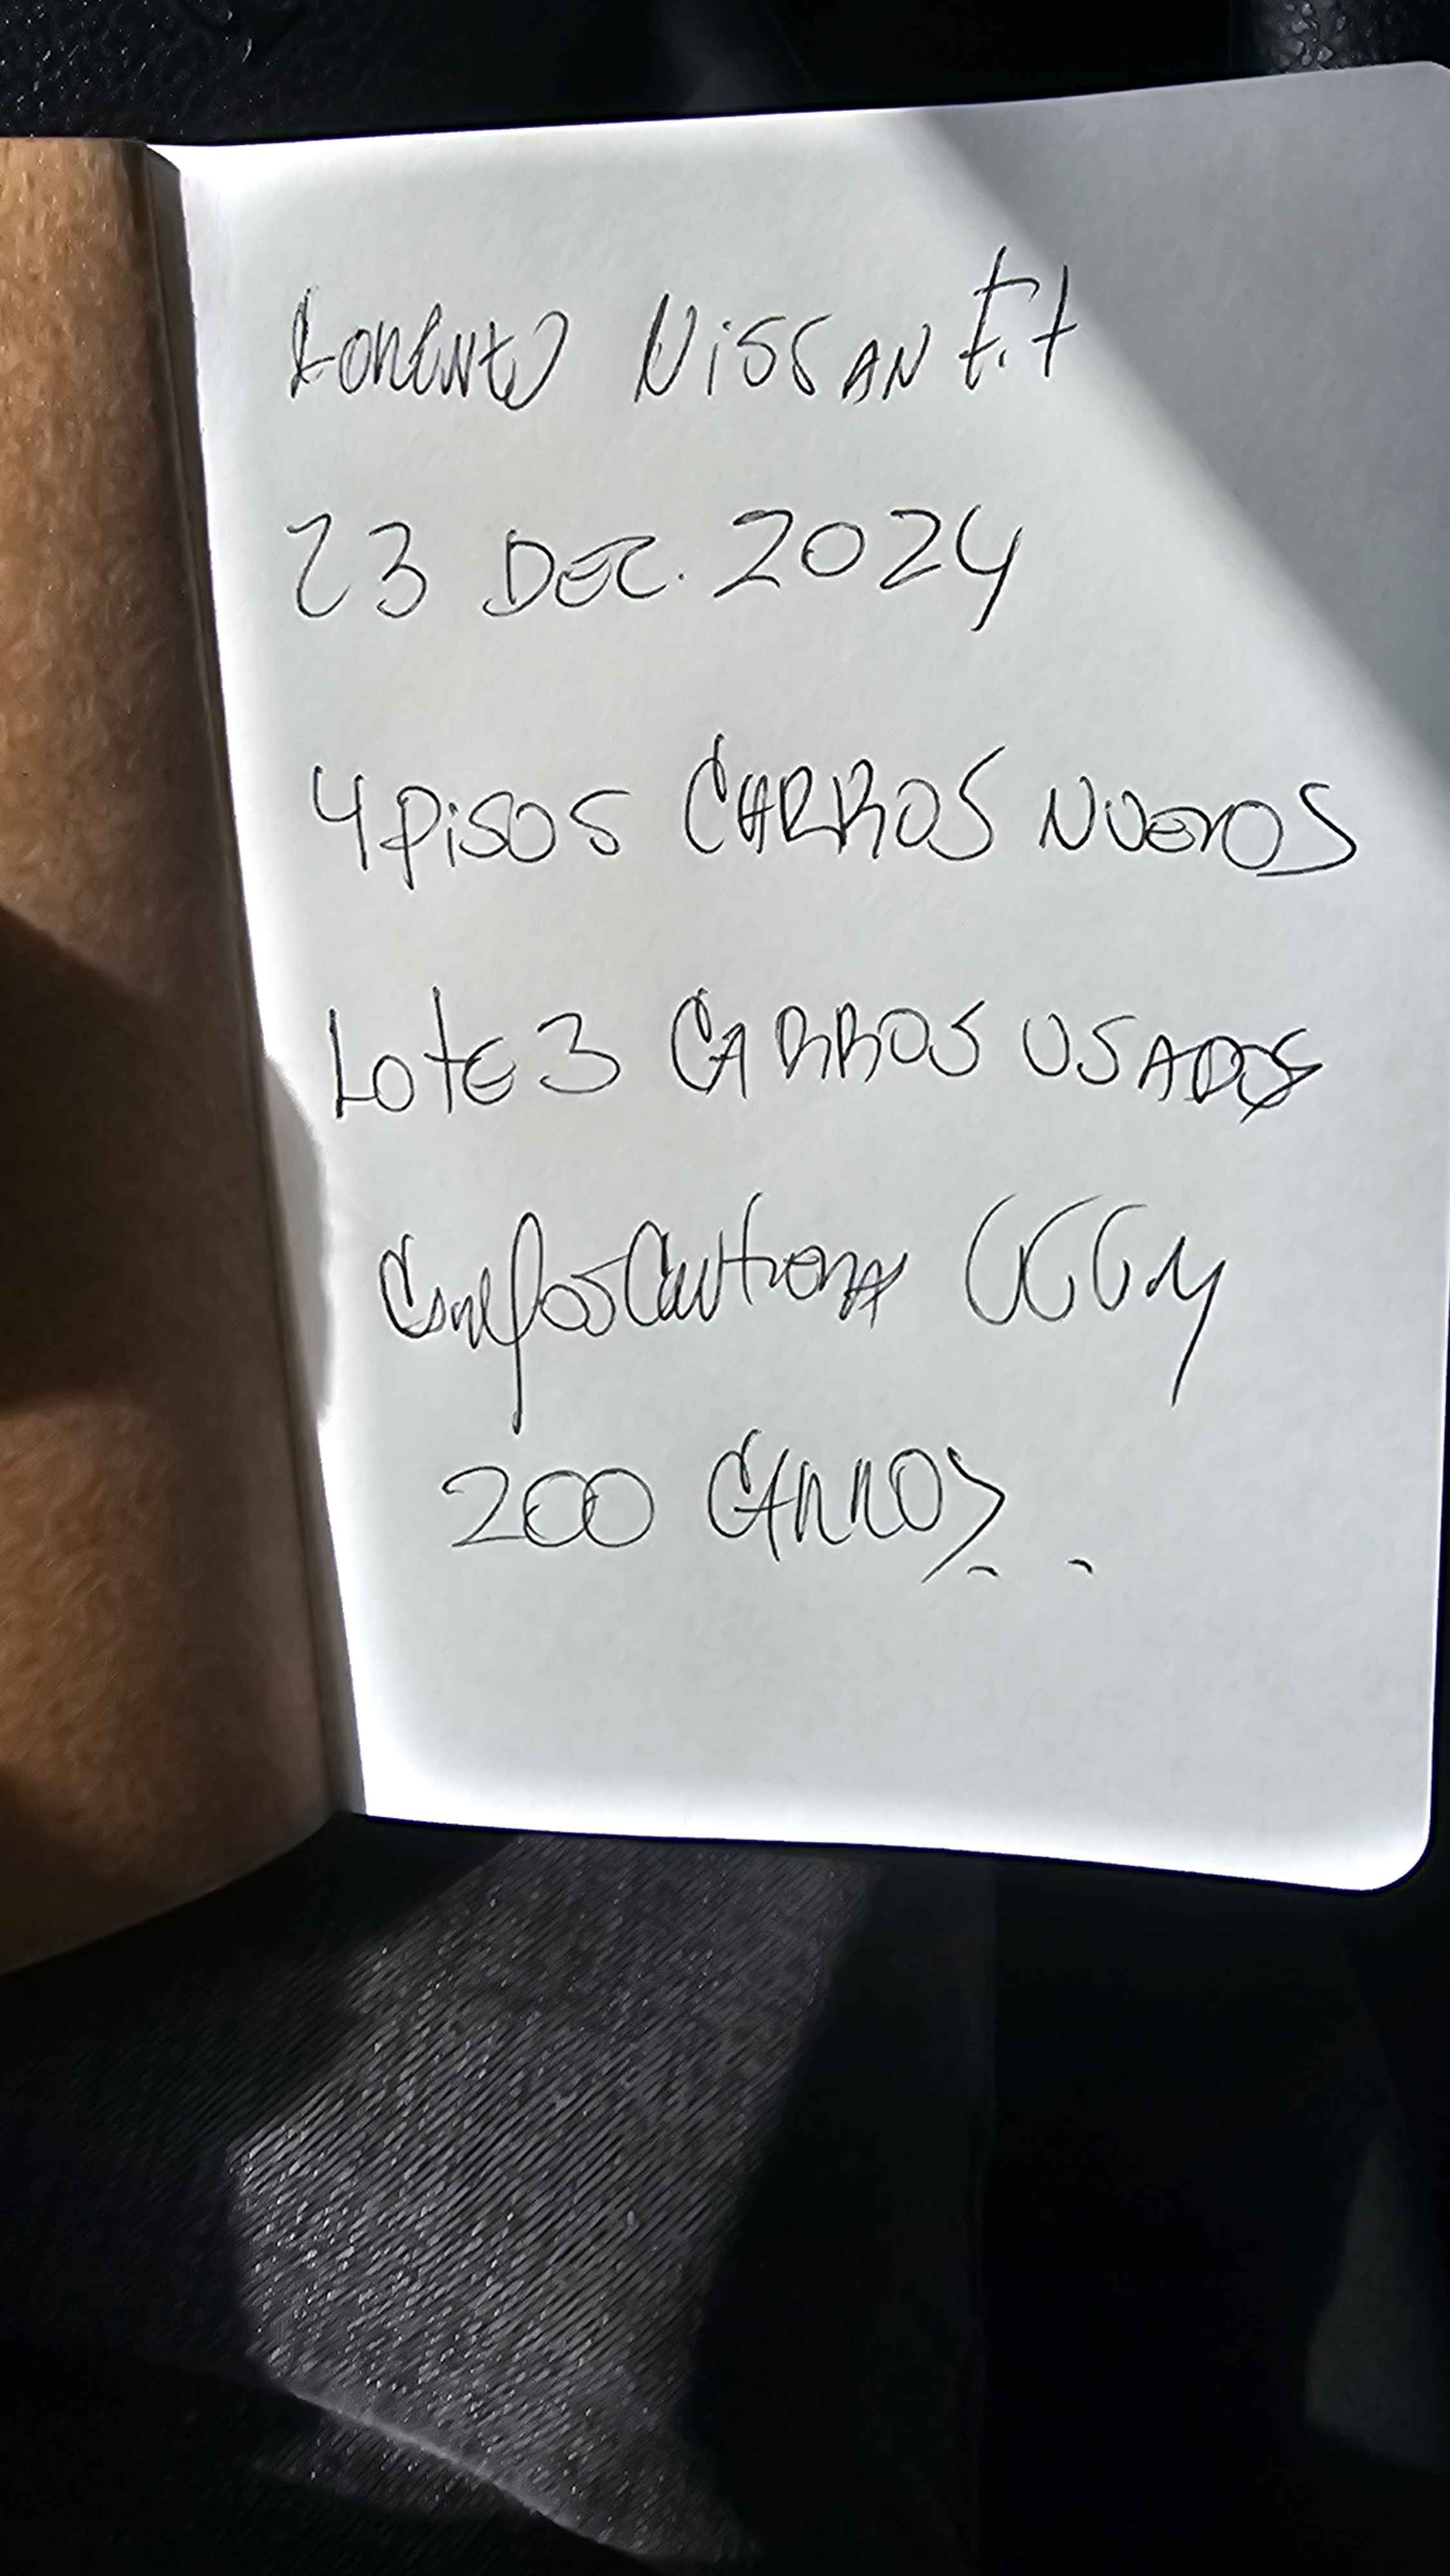 Lorento Nissan F.t
23 DEC. 2024
4 PiSOS CARROS NUEVOS
LOTE 3 CARROS USADOS
200 CARROS..